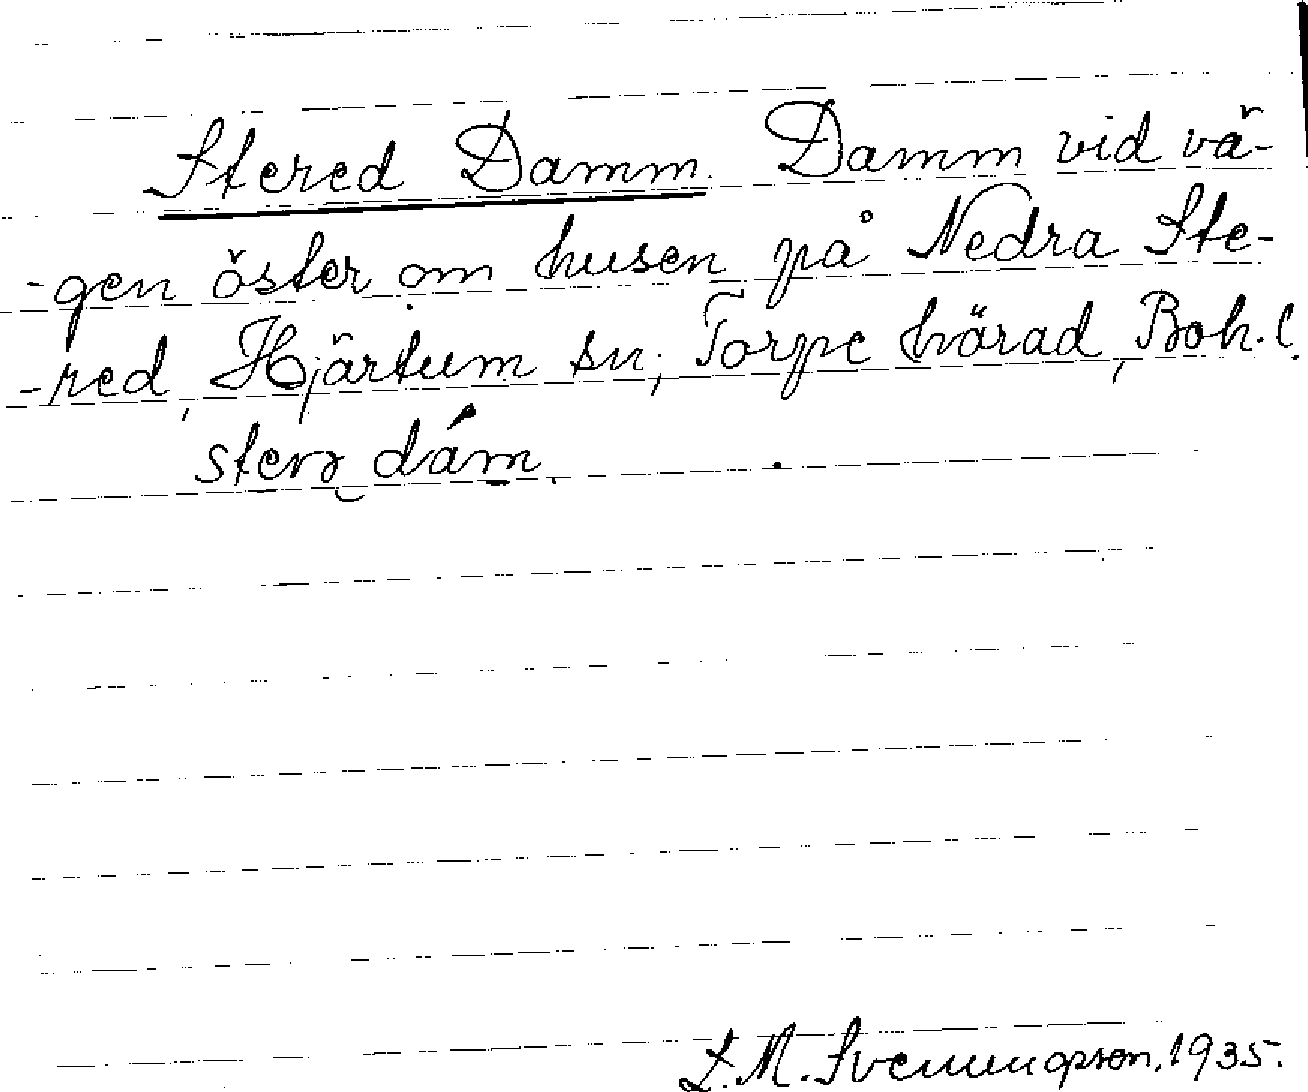 Stered Damm. Damm vid vä-
-gen öster om husen på Nedra Ste-
-red, Hjärtum sn, Torpe härad, Boh. l.
dám.
L. M. Svenungsson, 1935.